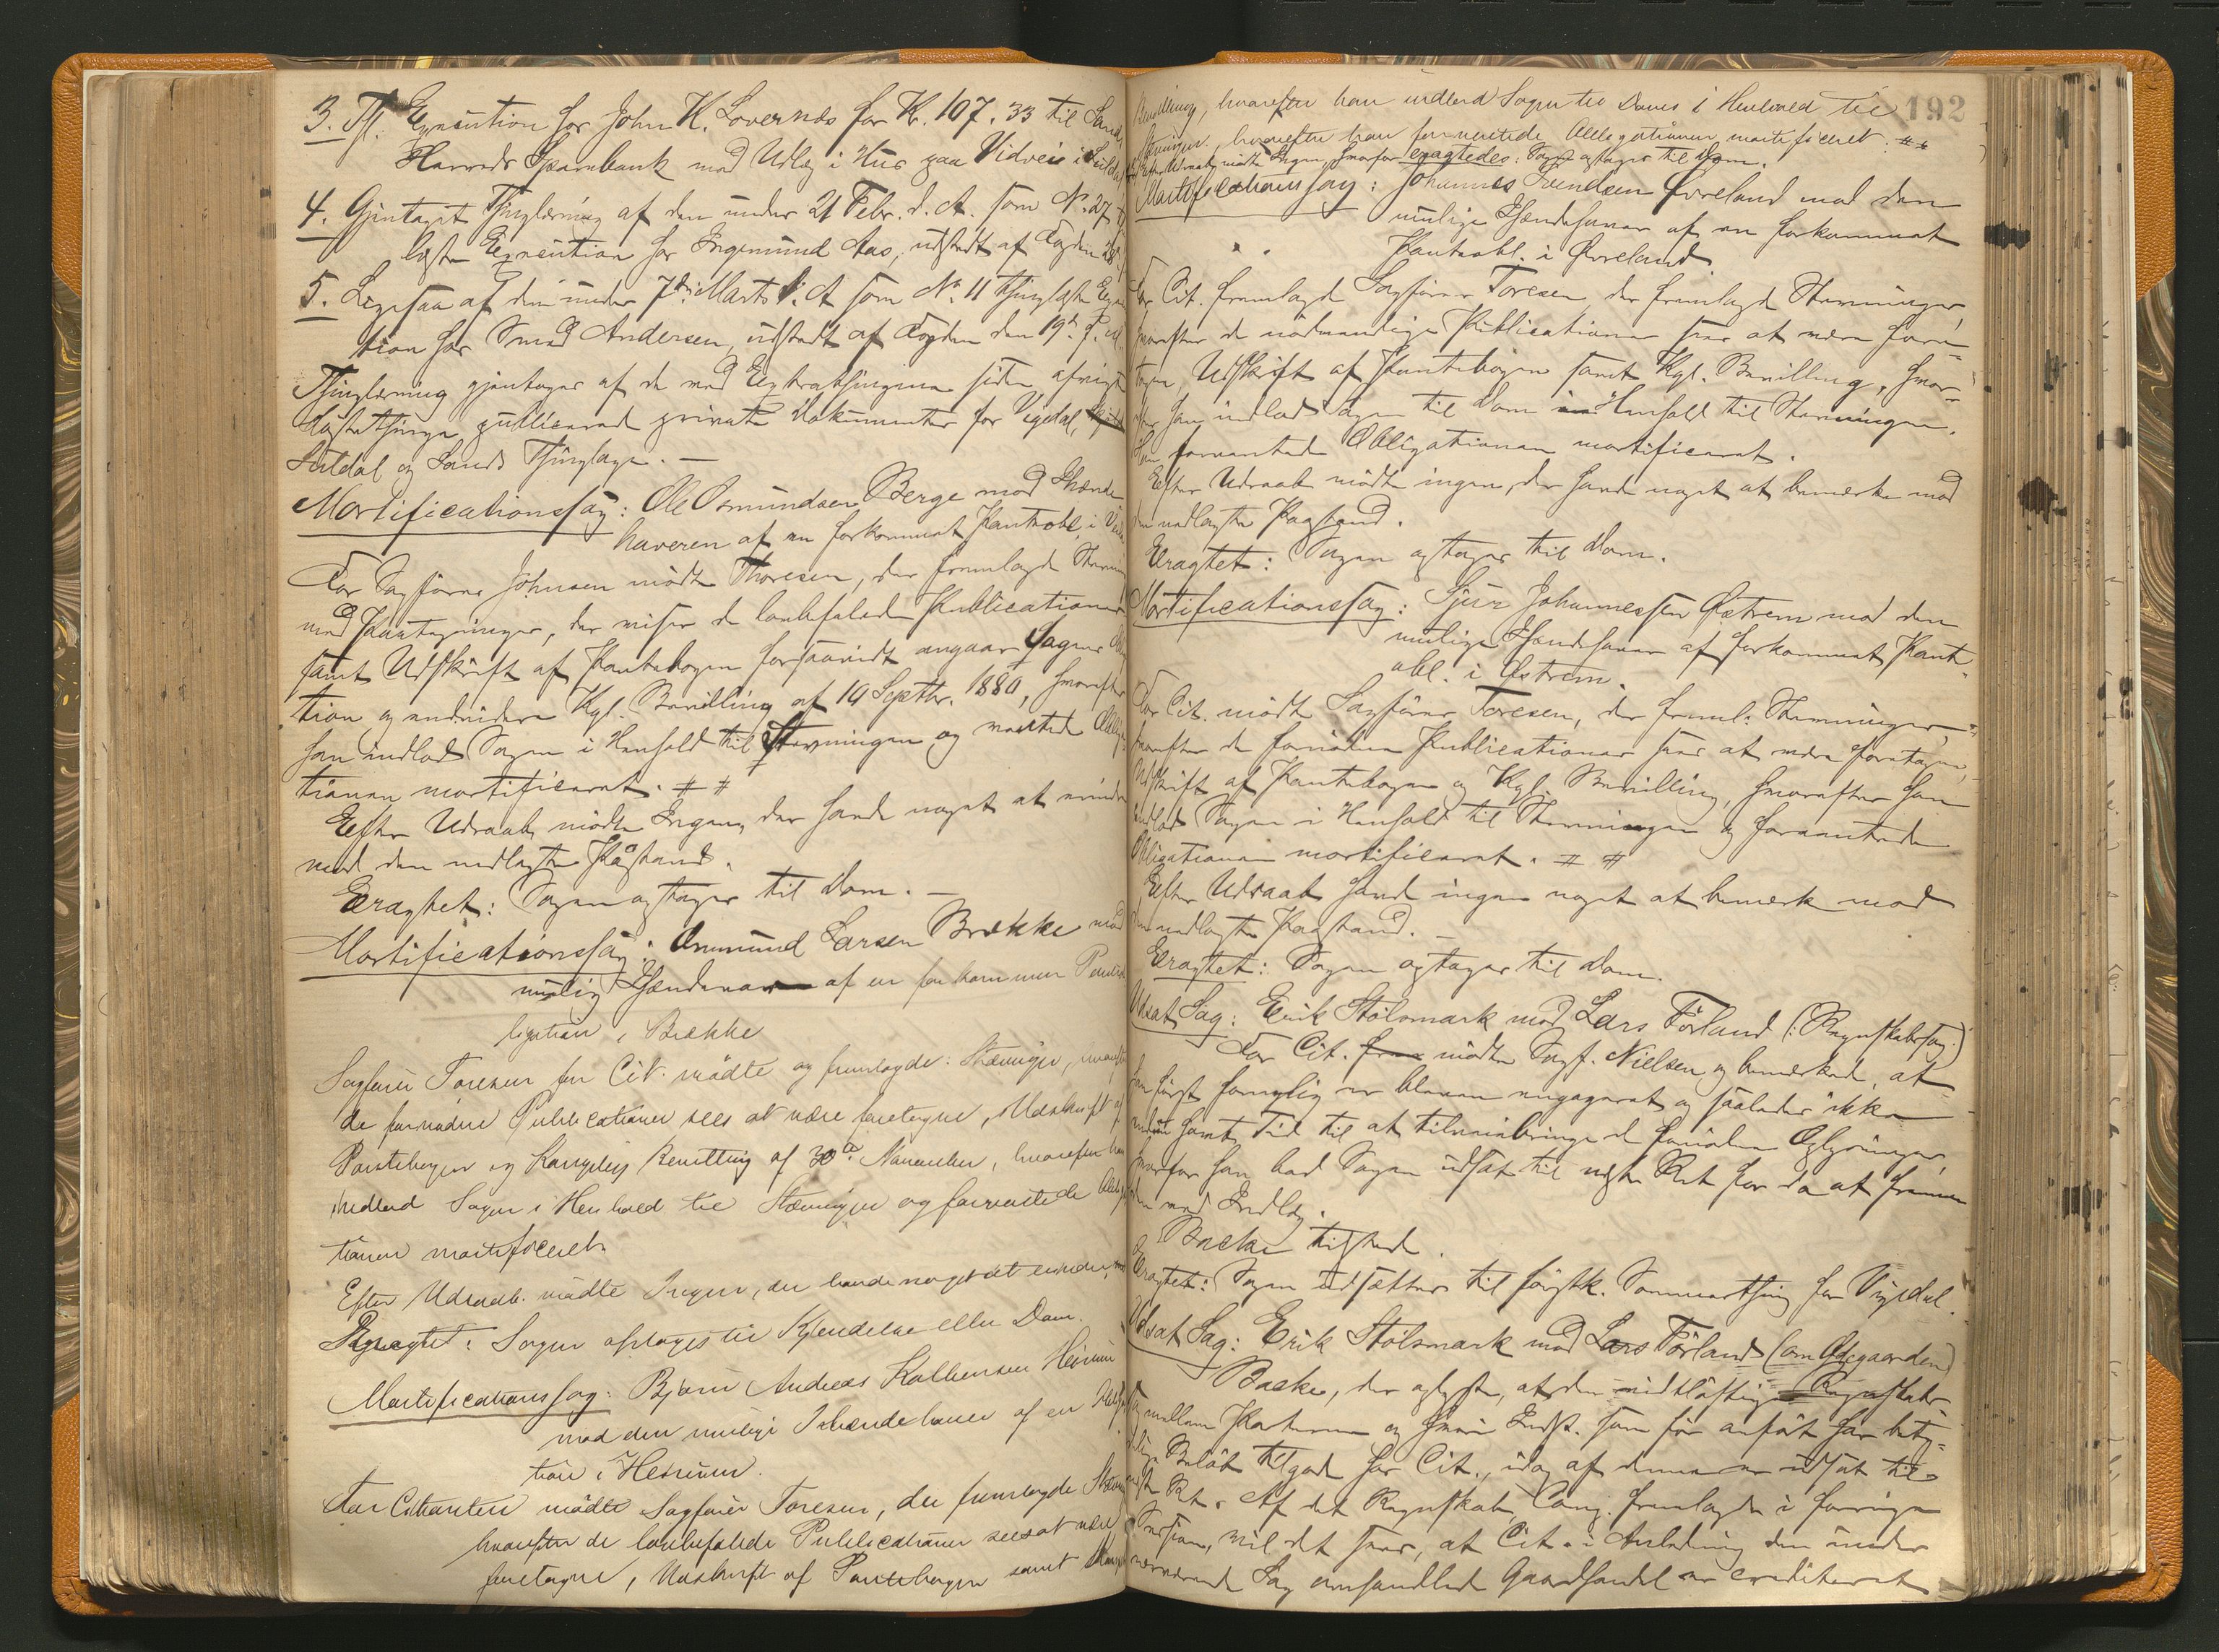 3. Tl. Execution hos John K. Lovernds for Kr. 107.33 til Sands
Herreds Sparebank med Udlæg i Hus paa Vidveis i Suldal
4. Gjentaget Thinglæsning af den under 21 Febr. d. A. som No 27
læste Execution hos Ingemund Aas, udstedt af Fogden
5. Ligesaa af den under 7de Marts d. A som No 11 thinglæste Execu
tion hos Smed Andersen, udstedt af Fogden den 19de
Thinglæsning gjentages af de ved Extrathingene siden afvigte
Høstething publicerede private Dokumenter for Vigedal,
Suldal og Sands Thinglage. —
Mortificationssag: Ole Osmundsen Berge mod Ihænde
haveren af en forkommet Panteobl. i
For Sagfører Johnsen mødte Thoresen, der fremlagde Stævning
med Paategninger, der viser de lovbefalede Publicationer
samt Udskrift af Pantebogen forsaavidt angaar Sagens Obliga
tion og endvidere Kgl. Bevilling af 14 Septbr. 1880, hvorefter
han indlod Sagen i Henhold til Stævningen og ventede Obliga
tionen mortificeret. # #
Efter Udraab mødte Ingen, der havde noget at erindre
mod den nedlagte Påstand.
Eragtet: Sagen optages til Dom. —
Mortificationssag: Ommund Larsen Brække mod
mulig Ihændehaver af en forkommen Panteob
ligation i Brække
Sagfører Toresen for Cit. mødte og fremlagde: Stævninger, hvorefter
de fornødne Publicationer sees at være foretagne, Udskrift af
Pantebogen og Kongelig Bevilling af 30te November, hvorefter han
indlod Sagen i Henhold til Stævningen og forventede Obliga
tionen mortificeret.
Efter Udraab mødte Ingen, der havde noget at erindre,
Eragtet: Sagen optages til Kjendelse eller Dom.
Mortificationssag: Bjørn Andreas Kolbensen
mod den mulige Ihændehaver af en Obliga
tion i
For Citanten mødte Sagfører Toresen, der fremlagde Stævn
hvorefter de lovbefalede Publicationer sees at være
foretagne, Udskrift af Pantebogen samt
192
Bevilling, hvorefter han indlod Sagen til Doms i Henhold til
Stævningen, hvorefter han forventede Obligationen mortificeret. # #
Efter Udraab mødte Ingen, hvorfor eragtedes: Sagen optages til Dom.
Mortificationssag: Johannes Svendsen Øvreland mod den
mulige Ihændehaver af en forkommet
Panteobl. i Øvreland.
For Cit. fremlagde Sagfører Toresen, der fremlagde Stævninger,
hvorefter de nødvendige Publicationer sees at være fore-
tagne, Udskrift af Pantebogen samt Kgl. Bevilling, hvor-
efter han indlod Sagen til Dom i Henhold til Stævningen.
Han forventede Obligationen mortificeret.
Efter Udraab mødte ingen, der havde noget at bemærke mod
den nedlagte Paastand.
Eragtet: Sagen optages til Dom.
Mortificationssag: Sjur Johannessen Østrem mod den
mulige Ihændehaver af forkommet Pant
obl. i Østrem.
For Cit. mødte Sagfører Toresen, der freml. Stævninger,
hvorefter de fornødne Publicationer sees at være foretagne,
Udskrift af Pantebogen og Kgl. Bevilling, hvorefter han
indlod Sagen i Henhold til Stævningen og forventede
Obligationen mortificeret. # #
Efter Udraab havde ingen noget at bemærke mod
den nedlagte Paastand. —
Eragtet: Sagen optages til Dom.
Udsat Sag: Erik Stølsmark mod Lars Førland (: Regnskabssag:)
For Cit. mødte Sagf. Nielsen og bemærkede, at
han først fornylig er bleven engageret og saaledes ikke
endnu havt Tid til at tilveiebringe de fornødne Oplysninger,
hvorfor han bad Sagen udsat til næste Ret for da at fremme
den med Indlæg.
Backe tilstede.
Eragtet: Sagen udsættes til førstk. Sommerthing for Vigedal.
Udsat Sag: Erik Stølsmark mod Lars Førland (om Ødegaarden)
Backe, der oplyste, at den vidtløftige Regnskabs-
sag mellem Parterne og hvori Indst. som før anført har bety-
delige Beløb tilgode hos Cit., idag af denne er udsat til
næste Ret. Af det Regnskab, Cong. fremlagde i forrige
Session, vil det sees, at Cit. i Anledning den under
nærværende Sag omhandlede Gaardhandel er crediteret